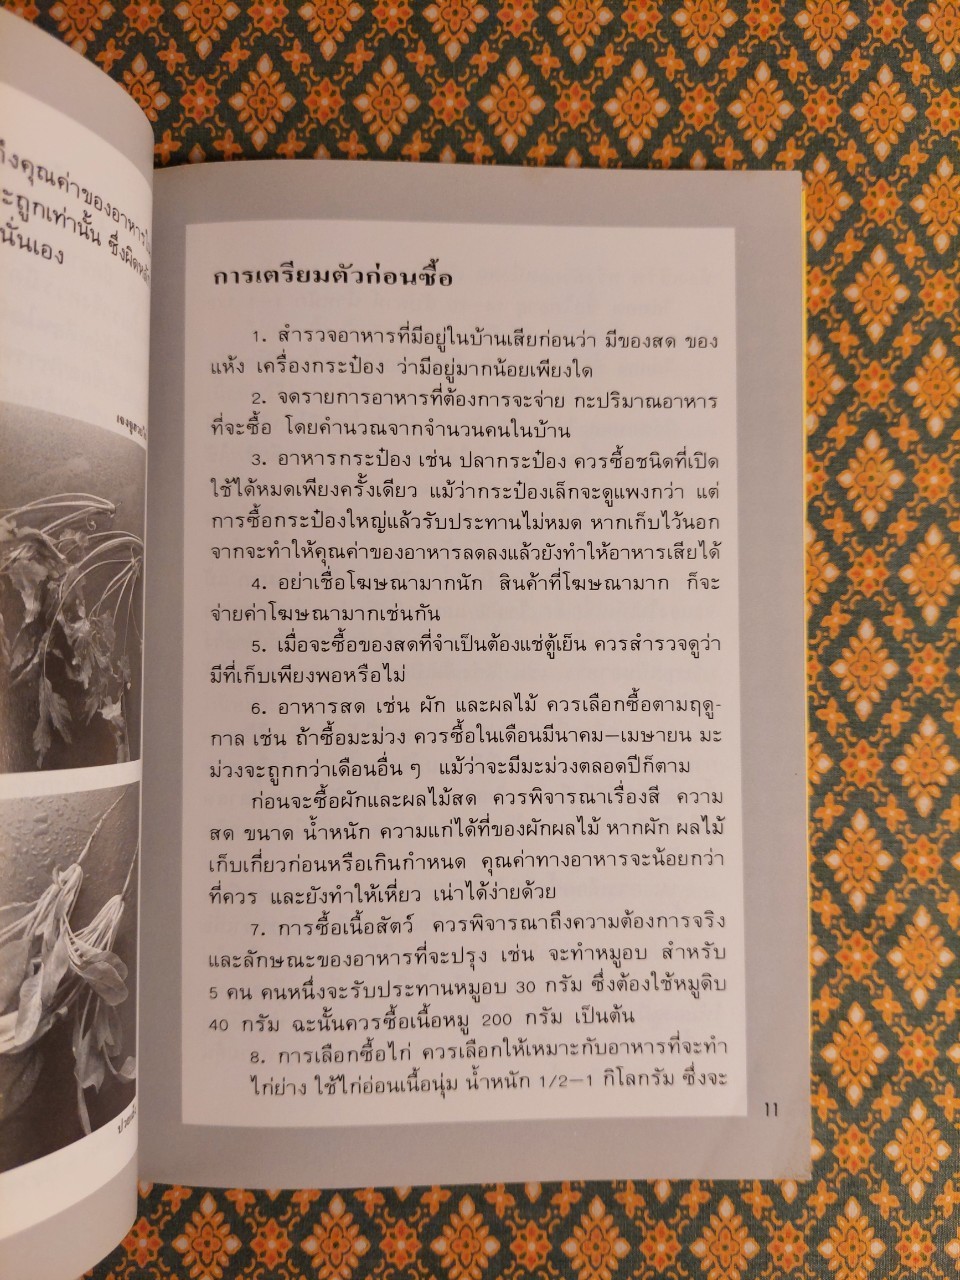 ถึงคุณค่าของอาหาร
ถูกเท่านั้น ซึ่งผิด
นั่นเอง
การเตรียมตัวก่อนซื้อ
1. สำรวจอาหารที่มีอยู่ในบ้านเสียก่อนว่า มีของสด ของ
แห้ง เครื่องกระป๋อง ว่ามีอยู่มากน้อยเพียงใด
2. จดรายการอาหารที่ต้องการจะจ่าย กะปริมาณอาหาร
ที่จะซื้อ โดยคำนวณจากจำนวนคนในบ้าน
3. อาหารกระป๋อง เช่น ปลากระป๋อง ควรซื้อชนิดที่เปิด
ใช้ได้หมดเพียงครั้งเดียว แม้ว่ากระป๋องเล็กจะดูแพงกว่า แต่
การซื้อกระป๋องใหญ่แล้วรับประทานไม่หมด หากเก็บไว้นอก
จากจะทำให้คุณค่าของอาหารลดลงแล้วยังทำให้อาหารเสียได้
4. อย่าเชื่อโฆษณามากนัก สินค้าที่โฆษณามาก ก็จะ
จ่ายค่าโฆษณามากเช่นกัน
5. เมื่อจะซื้อของสดที่จำเป็นต้องแช่ตู้เย็น ควรสำรวจดูว่า
มีที่เก็บเพียงพอหรือไม่
6. อาหารสด เช่น ผัก และผลไม้ ควรเลือกซื้อตามฤดู-
กาล เช่น ถ้าซื้อมะม่วง ควรซื้อในเดือนมีนาคม–เมษายน มะ
ม่วงจะถูกกว่าเดือนอื่น ๆ แม้ว่าจะมีมะม่วงตลอดปีก็ตาม
ก่อนจะซื้อผักและผลไม้สด ควรพิจารณาเรื่องสี ความ
สด ขนาด น้ำหนัก ความแก่ได้ที่ของผักผลไม้ หากผัก ผลไม้
เก็บเกี่ยวก่อนหรือเกินกำหนด คุณค่าทางอาหารจะน้อยกว่า
ที่ควร และยังทำให้เหี่ยว เน่าได้ง่ายด้วย
7. การซื้อเนื้อสัตว์ ควรพิจารณาถึงความต้องการจริง
และลักษณะของอาหารที่จะปรุง เช่น จะทำหมูอบ สำหรับ
5 คน คนหนึ่งจะรับประทานหมูอบ 30 กรัม ซึ่งต้องใช้หมูดิบ
40 กรัม ฉะนั้นควรซื้อเนื้อหมู 200 กรัม เป็นต้น
8. การเลือกซื้อไก่ ควรเลือกให้เหมาะกับอาหารที่จะทำ
ไก่ย่าง ใช้ไก่อ่อนเนื้อนุ่ม น้ำหนัก 1/2–1 กิโลกรัม ซึ่งจะ
11